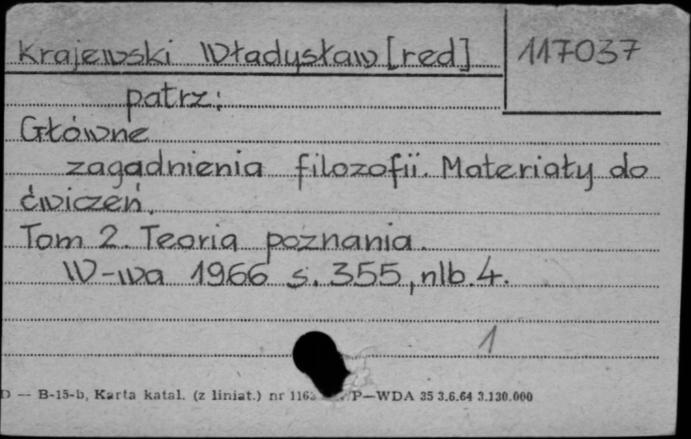 Krajewski Władysław [red] 117037
patrz:
Główne
zagadnienia filozofii. Materiały do
ćwiczeń.
Tom 2. Teoria poznania.
W-wa 1966 s. 355, nlb. 4.
1
D — B-15-b, Karta katal. (z liniat.) nr 116 P—WDA 35 3.6.64 3.130.000